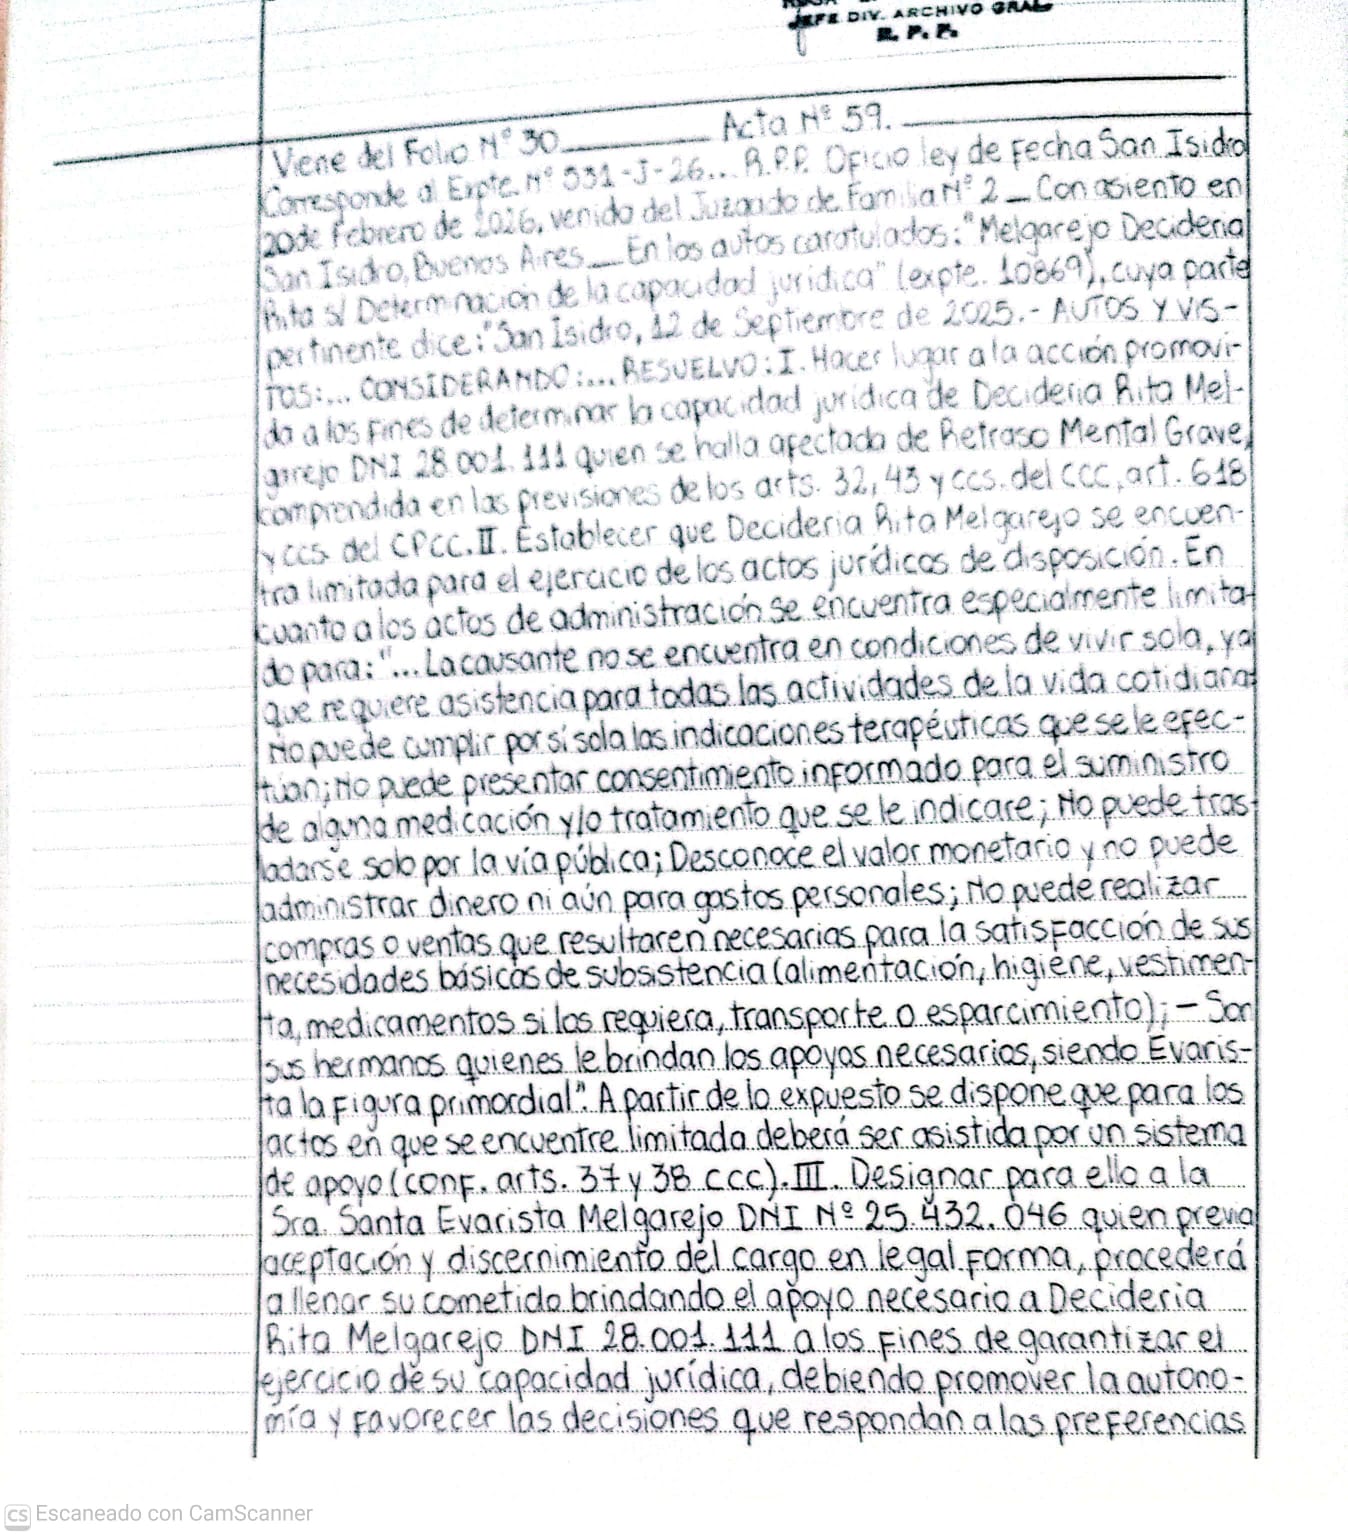 JEFE DIV. ARCHIVO GRAL
R. P. P.
Viene del Folio Nº 30 Acta Nº 59.
Corresponde al Expte. Nº 531-J-26... R.P.P. Oficio ley de fecha San Isidro
20 de Febrero de 2026, venido del Juzgado de Familia Nº 2 _ Con asiento en
San Isidro, Buenos Aires__ En los autos caratulados: "Melgarejo Decideria
Rita s/ Determinación de la capacidad jurídica" (expte. 10869), cuya parte
pertinente dice: "San Isidro, 12 de Septiembre de 2025.- AUTOS Y VIS-
TOS:... CONSIDERANDO:... RESUELVO: I. Hacer lugar a la acción promovi-
da a los fines de determinar la capacidad jurídica de Decideria Rita Mel-
garejo DNI 28.001.111 quien se halla afectada de Retraso Mental Grave,
comprendida en las previsiones de los arts. 32, 43 y ccs. del CCC, art. 618
y ccs. del CPCC. II. Establecer que Decideria Rita Melgarejo se encuen-
tra limitada para el ejercicio de los actos jurídicos de disposición. En
cuanto a los actos de administración se encuentra especialmente limita-
do para: "... La causante no se encuentra en condiciones de vivir sola, ya
que requiere asistencia para todas las actividades de la vida cotidiana;
No puede cumplir por sí sola las indicaciones terapéuticas que se le efec-
túan; No puede presentar consentimiento informado para el suministro
de alguna medicación y/o tratamiento que se le indicare; No puede tras-
ladarse solo por la vía pública; Desconoce el valor monetario y no puede
administrar dinero ni aún para gastos personales; No puede realizar
compras o ventas que resultaren necesarias para la satisfacción de sus
necesidades básicas de subsistencia (alimentación, higiene, vestimen-
ta, medicamentos si los requiera, transporte o esparcimiento); - Son
sus hermanos quienes le brindan los apoyos necesarios, siendo Evaris-
ta la figura primordial". A partir de lo expuesto se dispone que para los
actos en que se encuentre limitada deberá ser asistida por un sistema
de apoyo (conf. arts. 37 y 38 CCC). III. Designar para ello a la
Sra. Santa Evarista Melgarejo DNI Nº 25.432.046 quien previa
aceptación y discernimiento del cargo en legal forma, procederá
a llenar su cometido brindando el apoyo necesario a Decideria
Rita Melgarejo DNI 28.001.111 a los fines de garantizar el
ejercicio de su capacidad jurídica, debiendo promover la autono-
mía y favorecer las decisiones que respondan a las preferencias
CS Escaneado con CamScanner